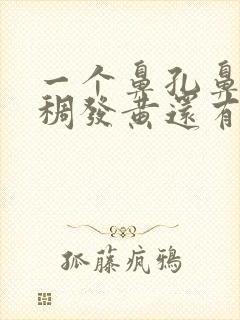 一个鼻孔鼻
稠發黃還有
孤藤疯鴉